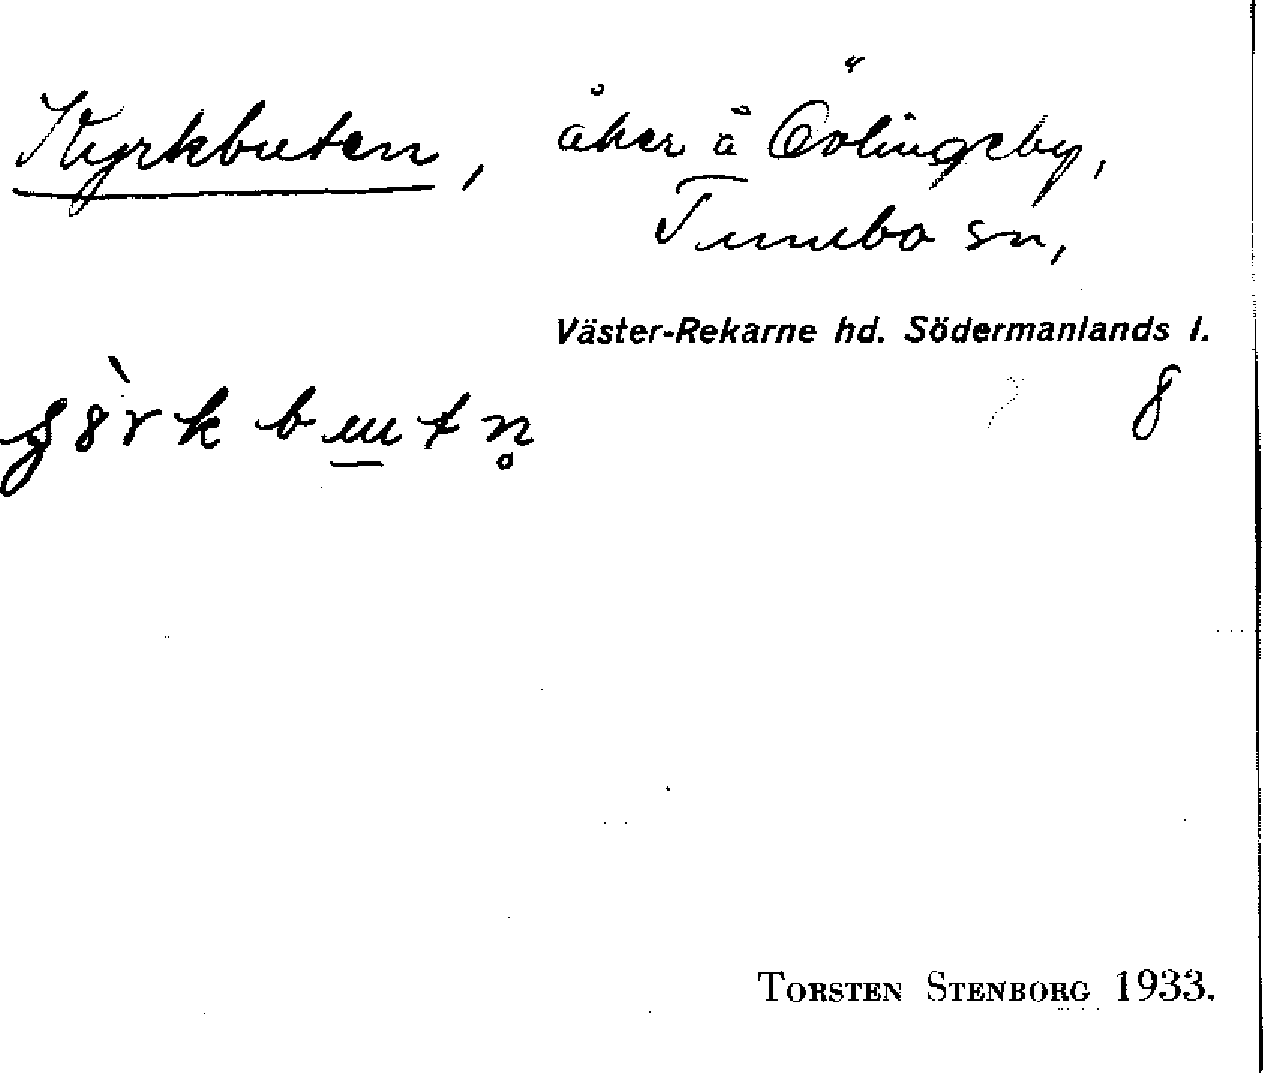 Kyrkbuten, åker å Öolingsby,
Tumbo sn,
Väster-Rekarne hd. Södermanlands l.
8
TORSTEN STENBORG 1933.